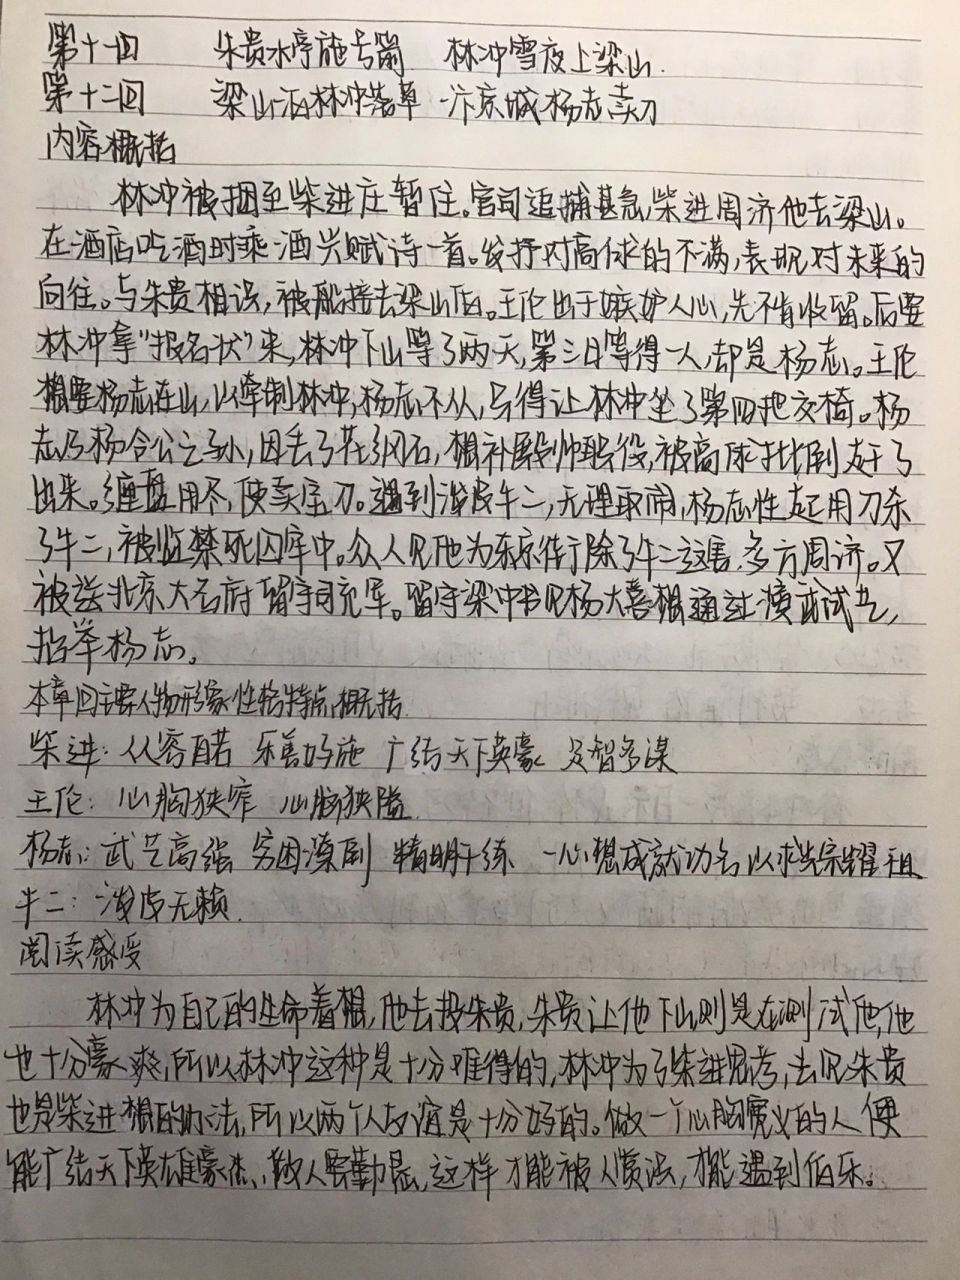 第十一回 朱贵水亭施号箭 林冲雪夜上梁山.
第十二回 梁山泊林冲落草 汴京城杨志卖刀
内容概括
林冲被捆至柴进庄暂住。官司追捕甚急,柴进周济他去梁山。
在酒店吃酒时乘酒兴赋诗一首。发抒对高俅的不满,表现对未来的
向往。与朱贵相识,被船接去梁山泊。王伦出于嫉妒人心,先不肯收留。后要
林冲拿"报名状"来,林冲下山等了两天,第三日等得一人,却是杨志。王伦
想要杨志在山,以牵制林冲,杨志不从,只得让林冲坐了第四把交椅。杨
志乃杨令公之孙,因丢了花纲石,想补殿帅职役,被高俅批倒赶了
出来。缠盘用尽,便卖宝刀。遇到泼皮牛二,无理取闹,杨志性起用刀杀
了牛二,被监禁死囚牢中。众人见他为东京街除了牛二这害,多方周济。又
被送北京大名府留守司充军。留守梁中书见杨大喜想通过演武试艺,
抬举杨志。
本章回主要人物形象性格特点概括.
柴进:从容自若 乐善好施 广结天下英豪 足智多谋
王伦:心胸狭窄 心胸狭隘
杨志:武艺高强 穷困潦倒 精明干练 一心想成就功名以求光宗耀祖
牛二:泼皮无赖.
阅读感受
林冲为自己的生命着想,他去投朱贵,朱贵让他下山则是在测试他,他
也十分豪爽,所以林冲这种是十分难得的,林冲为了柴进思考,去见朱贵
也是柴进想的办法,所以两个人友谊是十分好的。做一个心胸宽义的人便
能广结天下英雄豪杰,做人要勤恳,这样才能被人赏识,才能遇到伯乐。